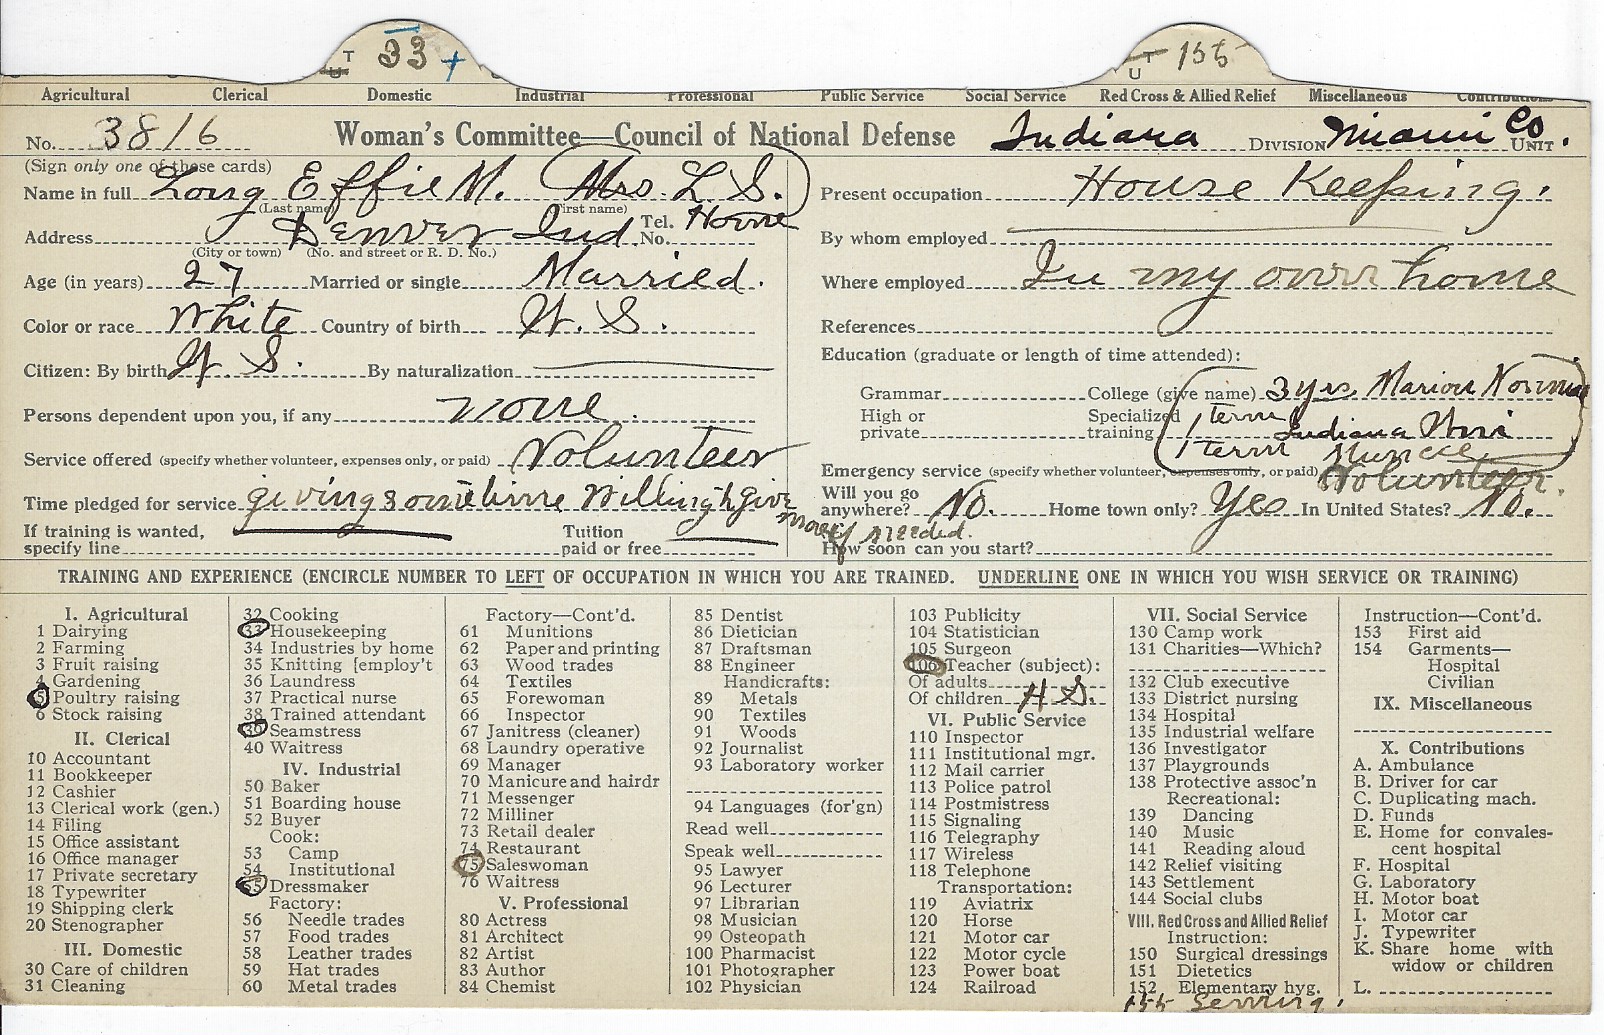 T 33 + T 155
U U
Agricultural Clerical Domestic Industrial Professional Public Service Social Service Red Cross & Allied Relief Miscellaneous Contributions
No. 3816 Woman's Committee—Council of National Defense Indiana DIVISION Miami Co. UNIT.
(Sign only one of these cards)
Name in full Long Effie M. (Mrs. L. S.)
(Last name) (First name)
Address Denver Ind. Tel. No. Home
(City or town) (No. and street or R. D. No.)
Age (in years) 27 Married or single Married.
Color or race White Country of birth U. S.
Citizen: By birth U. S. By naturalization
Persons dependent upon you, if any none.
Service offered (specify whether volunteer, expenses only, or paid) Volunteer
Time pledged for service giving some time Willing to give more if needed.
If training is wanted, specify line Tuition paid or free
Present occupation House Keeping.
By whom employed
Where employed In my own home
References
Education (graduate or length of time attended):
Grammar College (give name) 3 yrs. Marion Normal
High or private Specialized training 1 term Indiana Uni
1 term Muncie
Emergency service (specify whether volunteer, expenses only, or paid) Volunteer.
Will you go anywhere? No. Home town only? Yes In United States? No.
How soon can you start?
TRAINING AND EXPERIENCE (ENCIRCLE NUMBER TO LEFT OF OCCUPATION IN WHICH YOU ARE TRAINED. UNDERLINE ONE IN WHICH YOU WISH SERVICE OR TRAINING)
I. Agricultural
1 Dairying
2 Farming
3 Fruit raising
4 Gardening
5 Poultry raising
6 Stock raising
II. Clerical
10 Accountant
11 Bookkeeper
12 Cashier
13 Clerical work (gen.)
14 Filing
15 Office assistant
16 Office manager
17 Private secretary
18 Typewriter
19 Shipping clerk
20 Stenographer
III. Domestic
30 Care of children
31 Cleaning
32 Cooking
33 Housekeeping
34 Industries by home
35 Knitting [employ't
36 Laundress
37 Practical nurse
38 Trained attendant
39 Seamstress
40 Waitress
IV. Industrial
50 Baker
51 Boarding house
52 Buyer
Cook:
53 Camp
54 Institutional
55 Dressmaker
Factory:
56 Needle trades
57 Food trades
58 Leather trades
59 Hat trades
60 Metal trades
Factory—Cont'd.
61 Munitions
62 Paper and printing
63 Wood trades
64 Textiles
65 Forewoman
66 Inspector
67 Janitress (cleaner)
68 Laundry operative
69 Manager
70 Manicure and hairdr
71 Messenger
72 Milliner
73 Retail dealer
74 Restaurant
75 Saleswoman
76 Waitress
V. Professional
80 Actress
81 Architect
82 Artist
83 Author
84 Chemist
85 Dentist
86 Dietician
87 Draftsman
88 Engineer
Handicrafts:
89 Metals
90 Textiles
91 Woods
92 Journalist
93 Laboratory worker
94 Languages (for'gn)
Read well
Speak well
95 Lawyer
96 Lecturer
97 Librarian
98 Musician
99 Osteopath
100 Pharmacist
101 Photographer
102 Physician
103 Publicity
104 Statistician
105 Surgeon
106 Teacher (subject):
Of adults
Of children H S.
VI. Public Service
110 Inspector
111 Institutional mgr.
112 Mail carrier
113 Police patrol
114 Postmistress
115 Signaling
116 Telegraphy
117 Wireless
118 Telephone
Transportation:
119 Aviatrix
120 Horse
121 Motor car
122 Motor cycle
123 Power boat
124 Railroad
VII. Social Service
130 Camp work
131 Charities—Which?
132 Club executive
133 District nursing
134 Hospital
135 Industrial welfare
136 Investigator
137 Playgrounds
138 Protective assoc'n
Recreational:
139 Dancing
140 Music
141 Reading aloud
142 Relief visiting
143 Settlement
144 Social clubs
VIII. Red Cross and Allied Relief
Instruction:
150 Surgical dressings
151 Dietetics
152 Elementary hyg.
155 Serving.
Instruction—Cont'd.
153 First aid
154 Garments—
Hospital
Civilian
IX. Miscellaneous
X. Contributions
A. Ambulance
B. Driver for car
C. Duplicating mach.
D. Funds
E. Home for convales-
cent hospital
F. Hospital
G. Laboratory
H. Motor boat
I. Motor car
J. Typewriter
K. Share home with
widow or children
L.